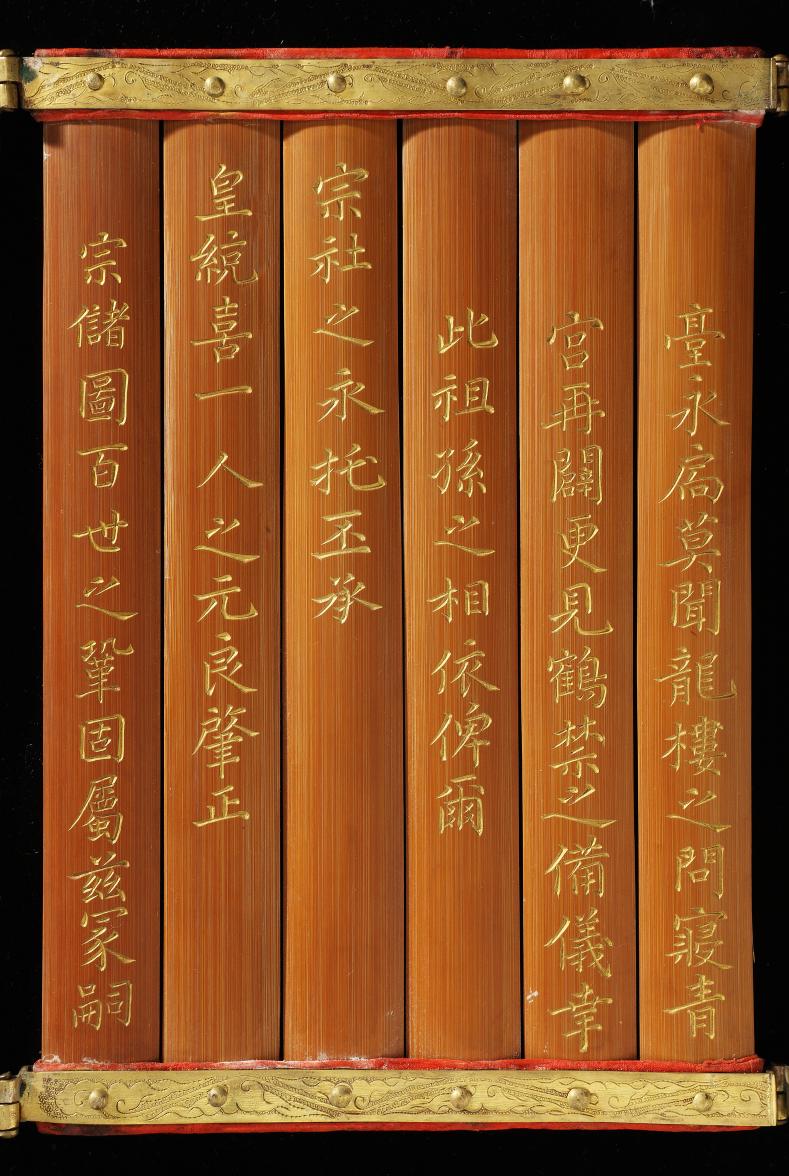 臺永扃莫聞龍樓之問寢青
宮再闢更見鶴禁之備儀幸
此祖孫之相依俾爾
宗社之永托丕承
皇統喜一人之元良肇正
宗儲圖百世之鞏固屬玆冢嗣